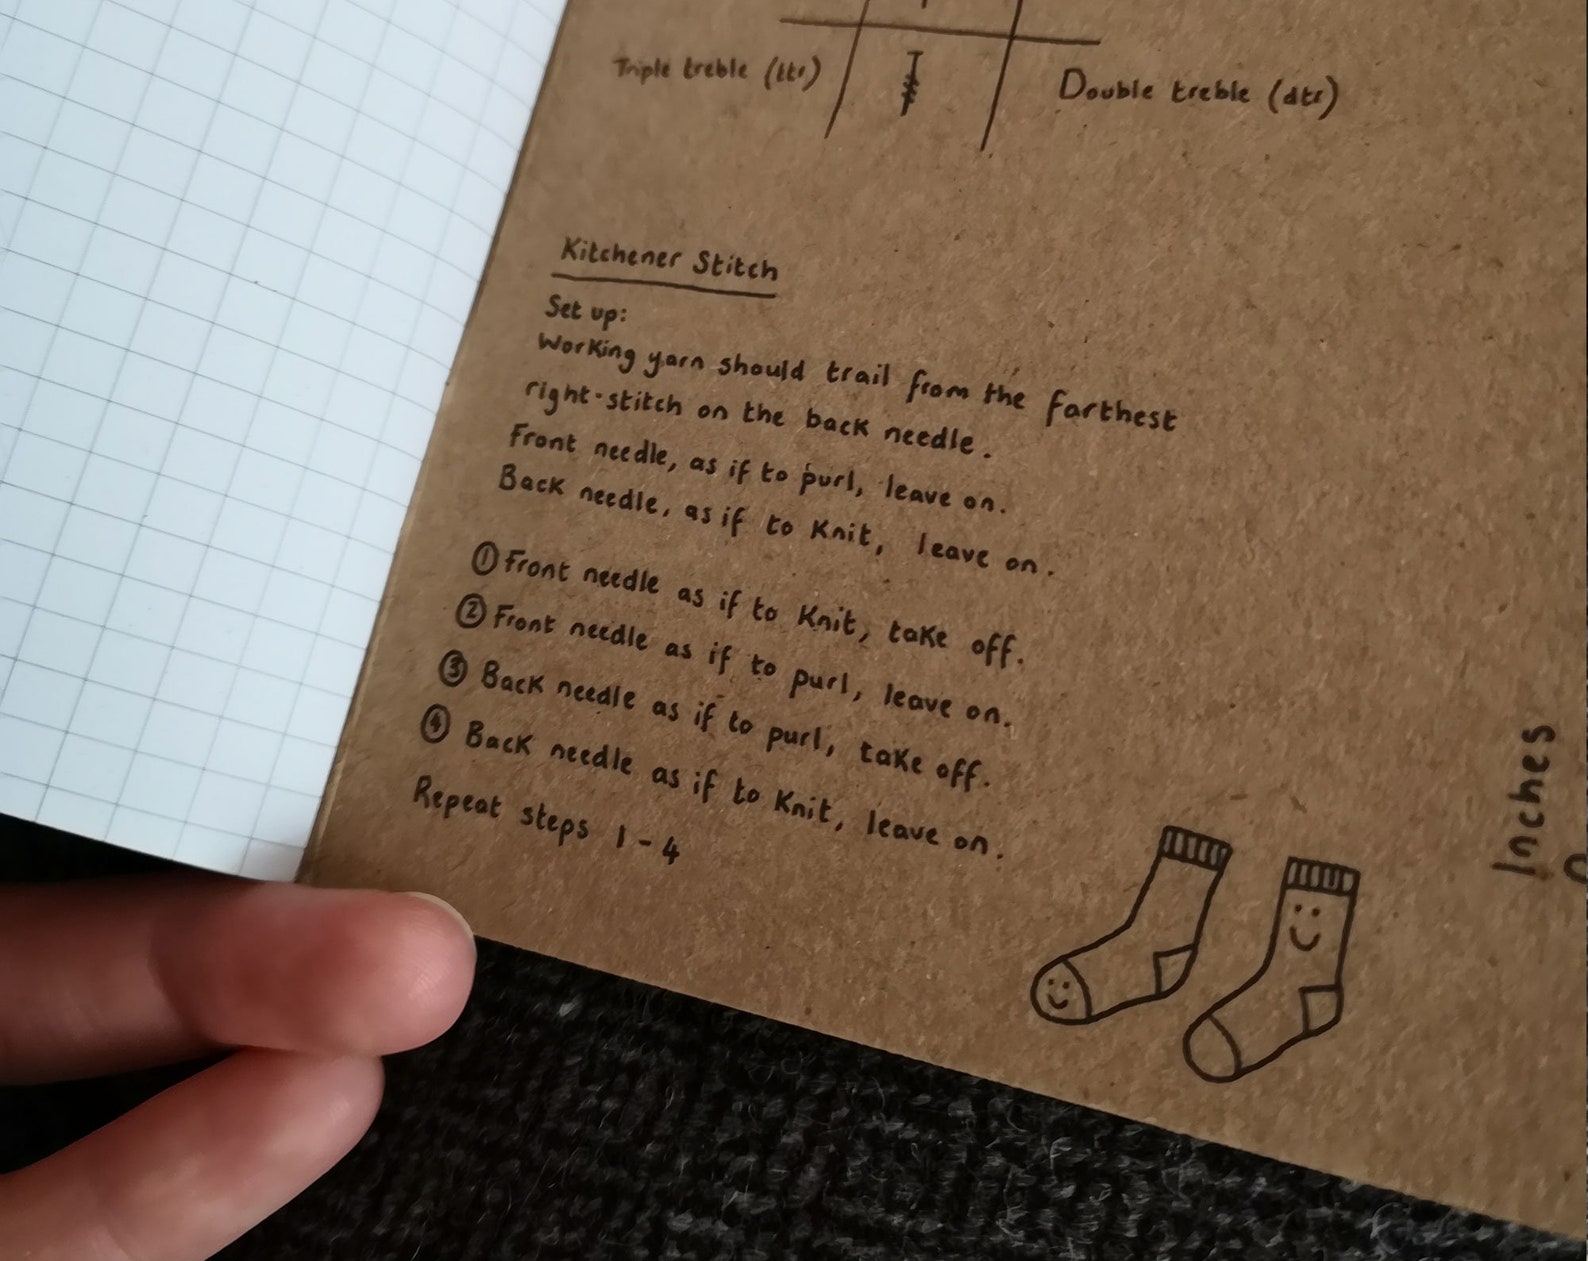 Triple treble (ttr) Double treble (dtr)
Kitchener Stitch
Set up:
Working yarn should trail from the farthest
right-stitch on the back needle.
Front needle, as if to purl, leave on.
Back needle, as if to Knit, leave on.
① Front needle as if to Knit, take off.
② Front needle as if to purl, leave on.
③ Back needle as if to purl, take off.
④ Back needle as if to Knit, leave on.
Repeat steps 1-4
Inches